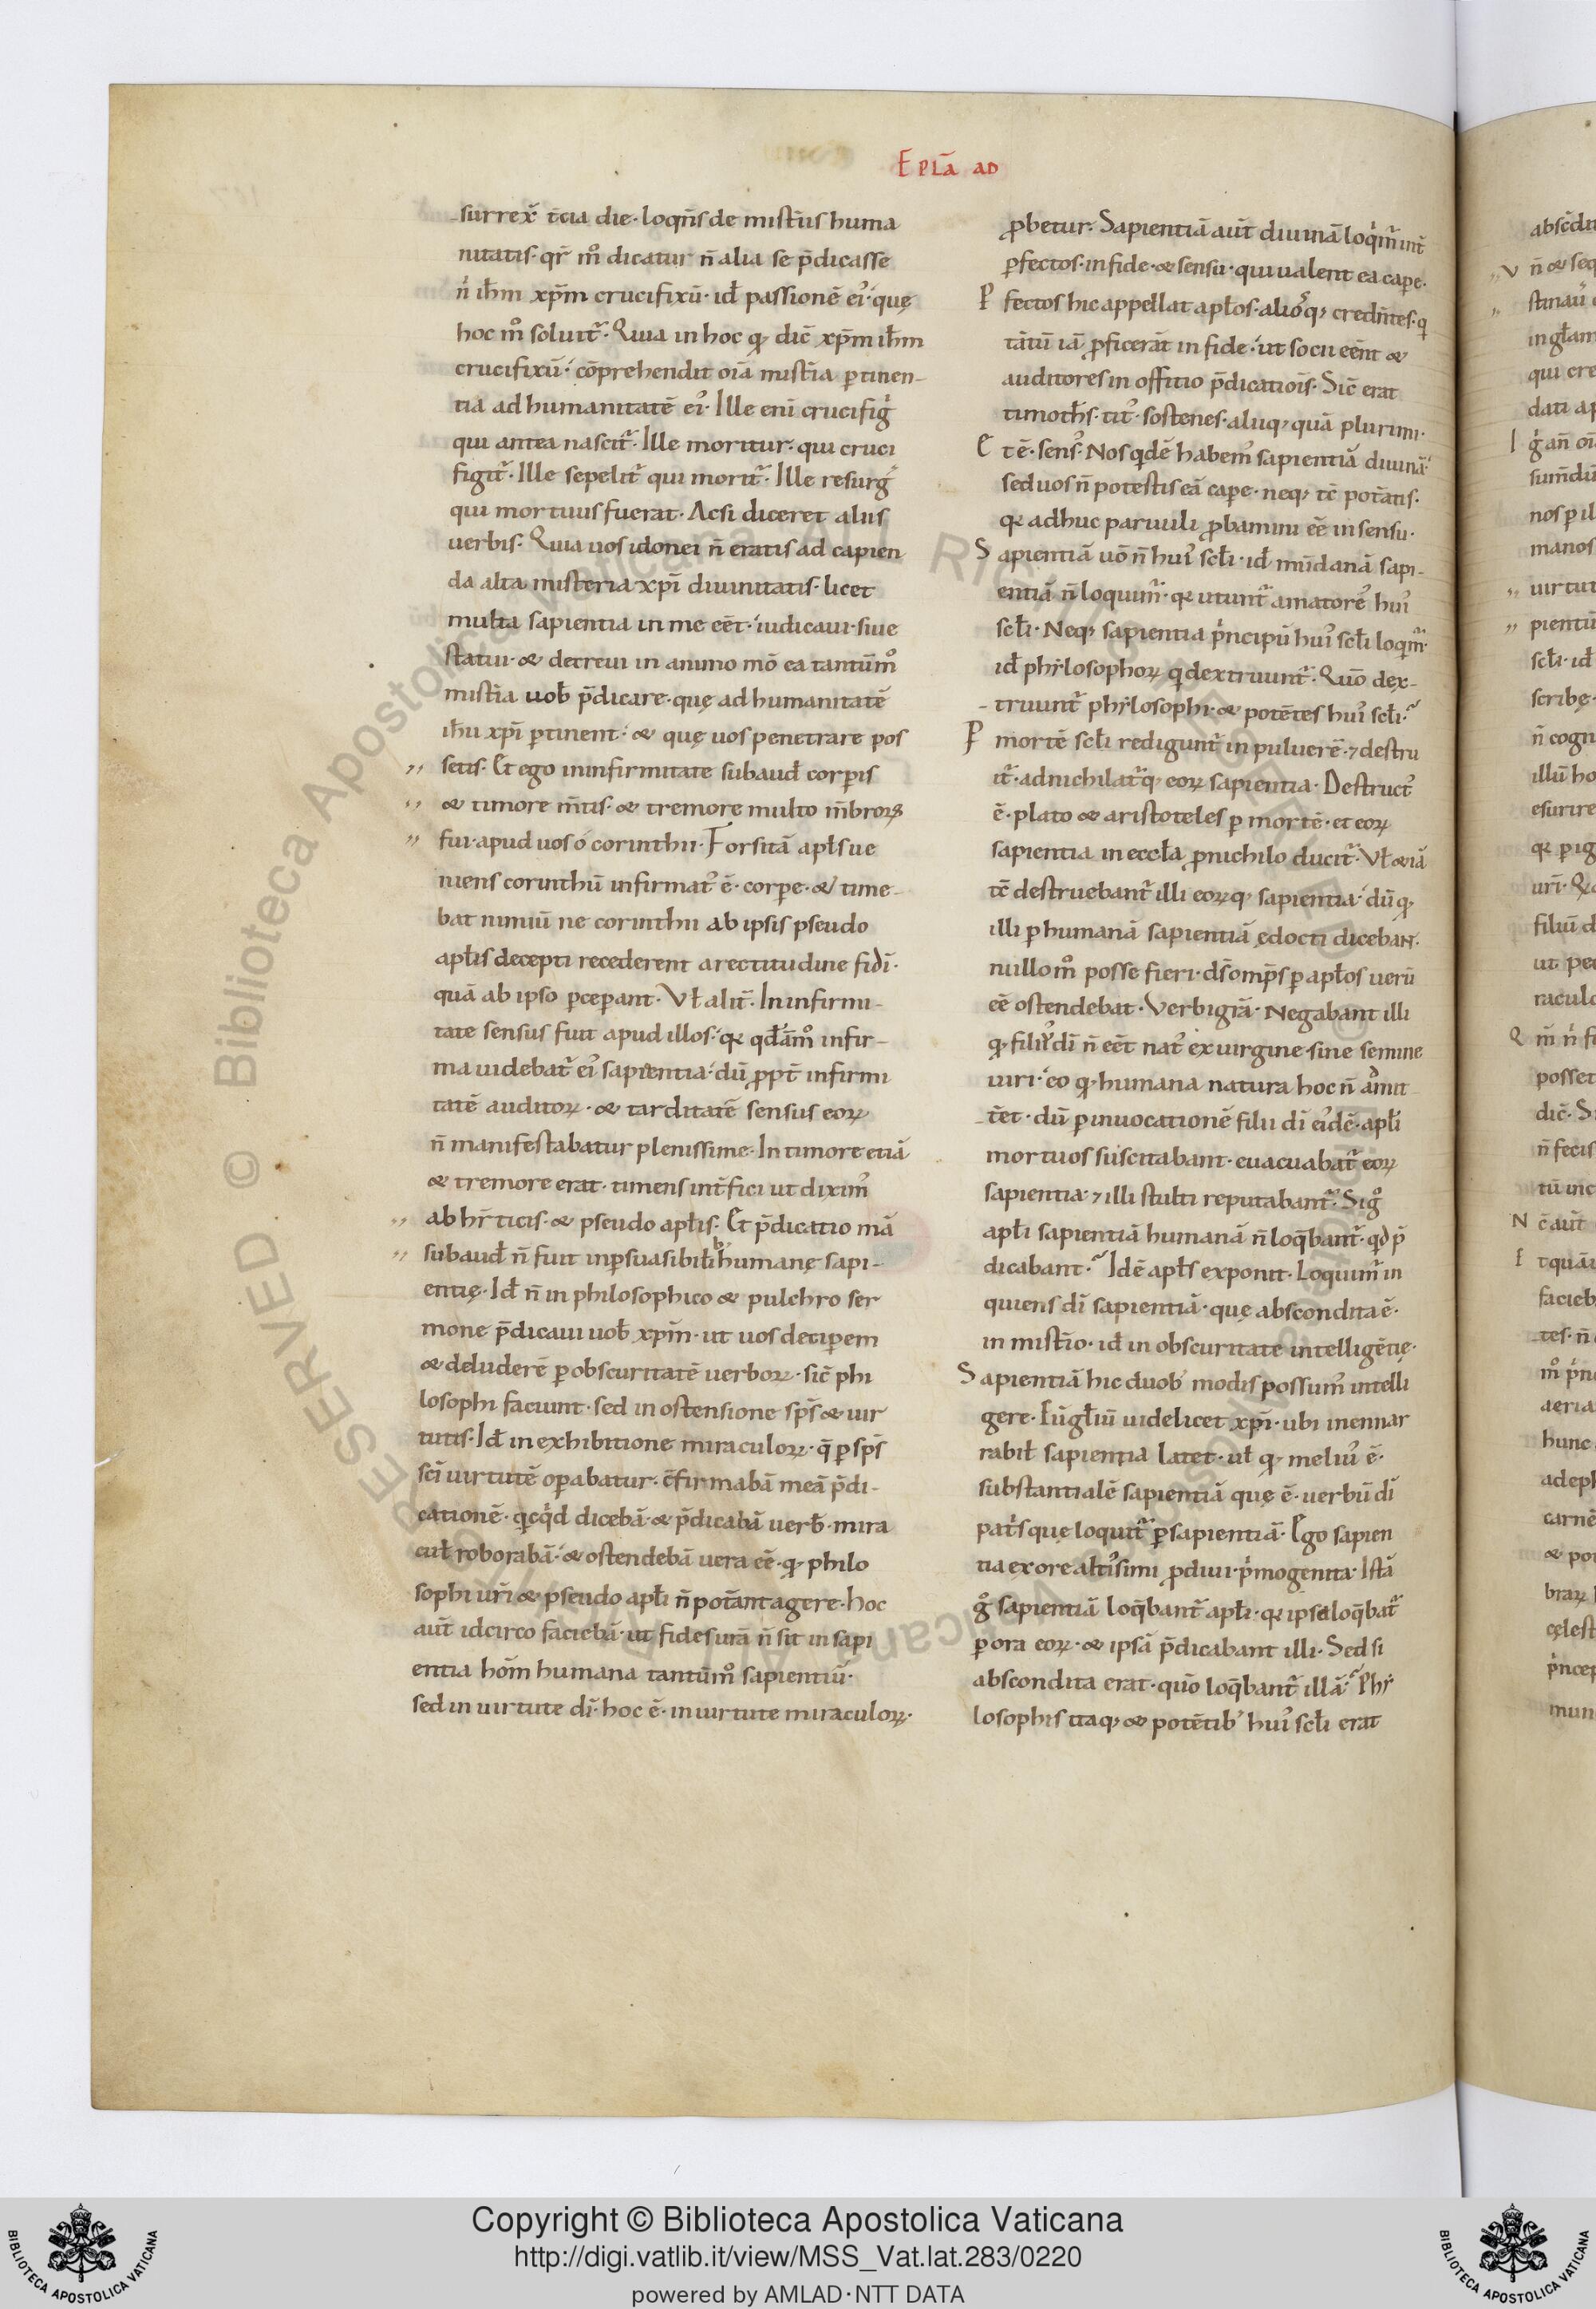 Eplā ad
surrex̄ t̄cia die· loqn̄s de mist̄iis huma
nitatis· qr̄ m̊ dicatur n̄ alia se p̄dicasse
n̍ ih̄m xp̄m crucifixū· id̄ passionē ei᾽· quę
hoc m̊ soluit᷑· Quia in hoc q; dic̄ xp̄m ih̄m
crucifixū· cōprehendit oīa mist̄ia ꝑtinen-
tia ad humanitatē ei᾽· Ille eni crucifiǵ
qui antea nascit᷑· Ille moritur· qui cruci
figit᷑· Ille sepelit᷑ qui morit᷑· Ille resurg̃
qui mortuus fuerat· Acsi diceret aliis
verbis· Quia uos idonei n̄ eratis ad capien
da alta misteria xp̄i diuinitatis· licet
multa sapientia in me eēt· iudicaui· siue
statui· & decreui in animo mō ea tantūm̊
mist̄ia uob̄ p̄dicare· quę ad humanitatē
ih̄u xp̄i ꝑtinent· & quę uos penetrare pos
setis· Et ego in infirmitate subaud̄ corꝑis
& timore m̄tis· & tremore multo m̄broꝝ
fui· apud uos ó corinthii· Forsitā apłs ue
niens corinthū infirmat᾽ ē· corꝑe· & time-
bat nimiū ne corinthii ab ipsis pseudo
apłis decepti recederent a rectitudine fidī·
quā ab ipso ꝑceꝑant· Vł alit̄· In infirmi-
tate sensus fuit apud illos· qꝛ qd̄ām̊ infir-
ma uidebat᷑ ei᾽ sapientia· dū ꝓpt̄ infirmi
tatē auditoꝝ· & tarditatē sensus eoꝝ
n̄ manifestabatur plenissime· In timore etiā
& tremore erat· timens int̄fici ut dixim᾽
ab hr̄ticis· & pseudo apłis· Et p̄dicatio mā
subaud̄ n̄ fuit in ꝑsuasibilib᾽ humanę sapi-
entię· Id̄ n̄ in philosophico & pulchro ser
mone p̄dicaui uob̄ xp̄m· ut uos deciꝑem
& deluderē ꝑ obscuritatē uerboꝝ· sic̄ phi
losophi faciunt· sed in ostensione sp̄s & uir
tutis· Id̄ in exhibitione miraculoꝝ· q̄ ꝑ sp̄s
sc̄i uirtutē oꝑabatur· c̄firmabā meā p̄di-
cationē· qcq̍d dicebā· & p̄dicabā uerb̄· mira
cuł roborabā· & ostendebā uera eē· q; philo
sophi ur̄i & pseudo apłi n̄ pot̄ant agere· hoc
aut̄ idcirco faciebā· ut fides urā n̄ sit in sapi
entia hom̄ humana tantūm̊ sapientiū·
sed in uirtute dī· hoc ē· in uirtute miraculoꝝ·
ꝓbetur· Sapientiā aut̄ diuinā loq̍m᷑ int̄
ꝑfectos· in fide· & sensu· qui ualent ea caꝑe·
Pfectos hic appellat apłos· aliosq; credn̄tes· q̍
tātū iā ꝓficerāt in fide· ut socii eēnt &
auditores in offitio p̄dicatiōis· Sic̄ erat
timoth̄s· tit᾽· sostenes· aliiq; quā plurimi·
E t ē· sens᾽· Nos qdē habem᾽ sapientiā diuinā·
sed uos n̄ potestis eā caꝑe· neq; tc̄ pot̄atis·
qꝛ adhuc paruuli ꝓbamini eē in sensu·
S apientiā uō n̄ hui᾽ scłi· id̄ mūdanā sapi-
entiā n̄ loquim᷑· qꝛ utunt᷑ amatore᾽ hui᾽
scłi· Neq; sapientia p̍ncipū hui᾽ scłi loqm᷑·
id̄ philosophoꝝ q̍ dextruunt᷑· Quō dex-
truunt᷑ philosophi· & potētes hui᾽ scłi·
P mortē scłi redigunt᷑ in puluerē· ⁊ destru
it᷑· adnichilat᷑q; eoꝝ sapientia· Destruct᾽
ē· plato & aristoteles ꝑ mortē· et eoꝝ
sapientia in eccła ꝓ nichilo ducit᷑· Vł & iā
tc̄ destruebant᷑ illi eoꝝq; sapientia· dū q;
illi ꝑ humanā sapientiā ędocti diceban̄·
nullom̊ posse fieri· ds̄ omp̄s ꝑ apłos uerū
eē ostendebat· Verbi grā· Negabant illi
q; fili᾽ dī n̄ eēt nat᾽ ex uirgine· sine semine
uiri· eo q; humana natura hoc n̄ amit-
t̄et· dū ꝑ inuocationē filii dī ei᾽dē· apłi
mortuos suscitabant· euacuabat᷑ eoꝝ
sapientia· ⁊ illi stulti reputabant᷑· Sig̊
apłi sapientiā humanā n̄ loq̄bant᷑· qd p̄
dicabant· Idē apłs exponit· Loquim᷑ in
quiens dī sapientiā· quę abscondita ē·
in mist̄io· id̄ in obscuritate intelligētię·
S apientiā hic duob᾽ modis possum᾽ intelli
gere· Eūgłiū uidelicet xp̄i· ubi inennar
rabił sapientia latet· uł q; meliu᾽ ē·
substantialē sapientiā quę ē· uerbū dī
pat̍s quę loquit᷑ ꝑ sapientiā· Ego sapien
tia ex ore altissimi ꝓdiui· p̍mogenita· Istā
g̊ sapientiā loq̄bant᷑ apłi· qꝛ ipsa loq̄bat᷑
ꝑ ora eoꝝ· & ipsā p̄dicabant illi· Sed si
abscondita erat· quō loq̄bant᷑ illā· Phi
losophis itaq; & potētib᾽ hui᾽ scłi erat
Copyright © Biblioteca Apostolica Vaticana
http://digi.vatlib.it/view/MSS_Vat.lat.283/0220
powered by AMLAD·NTT DATA